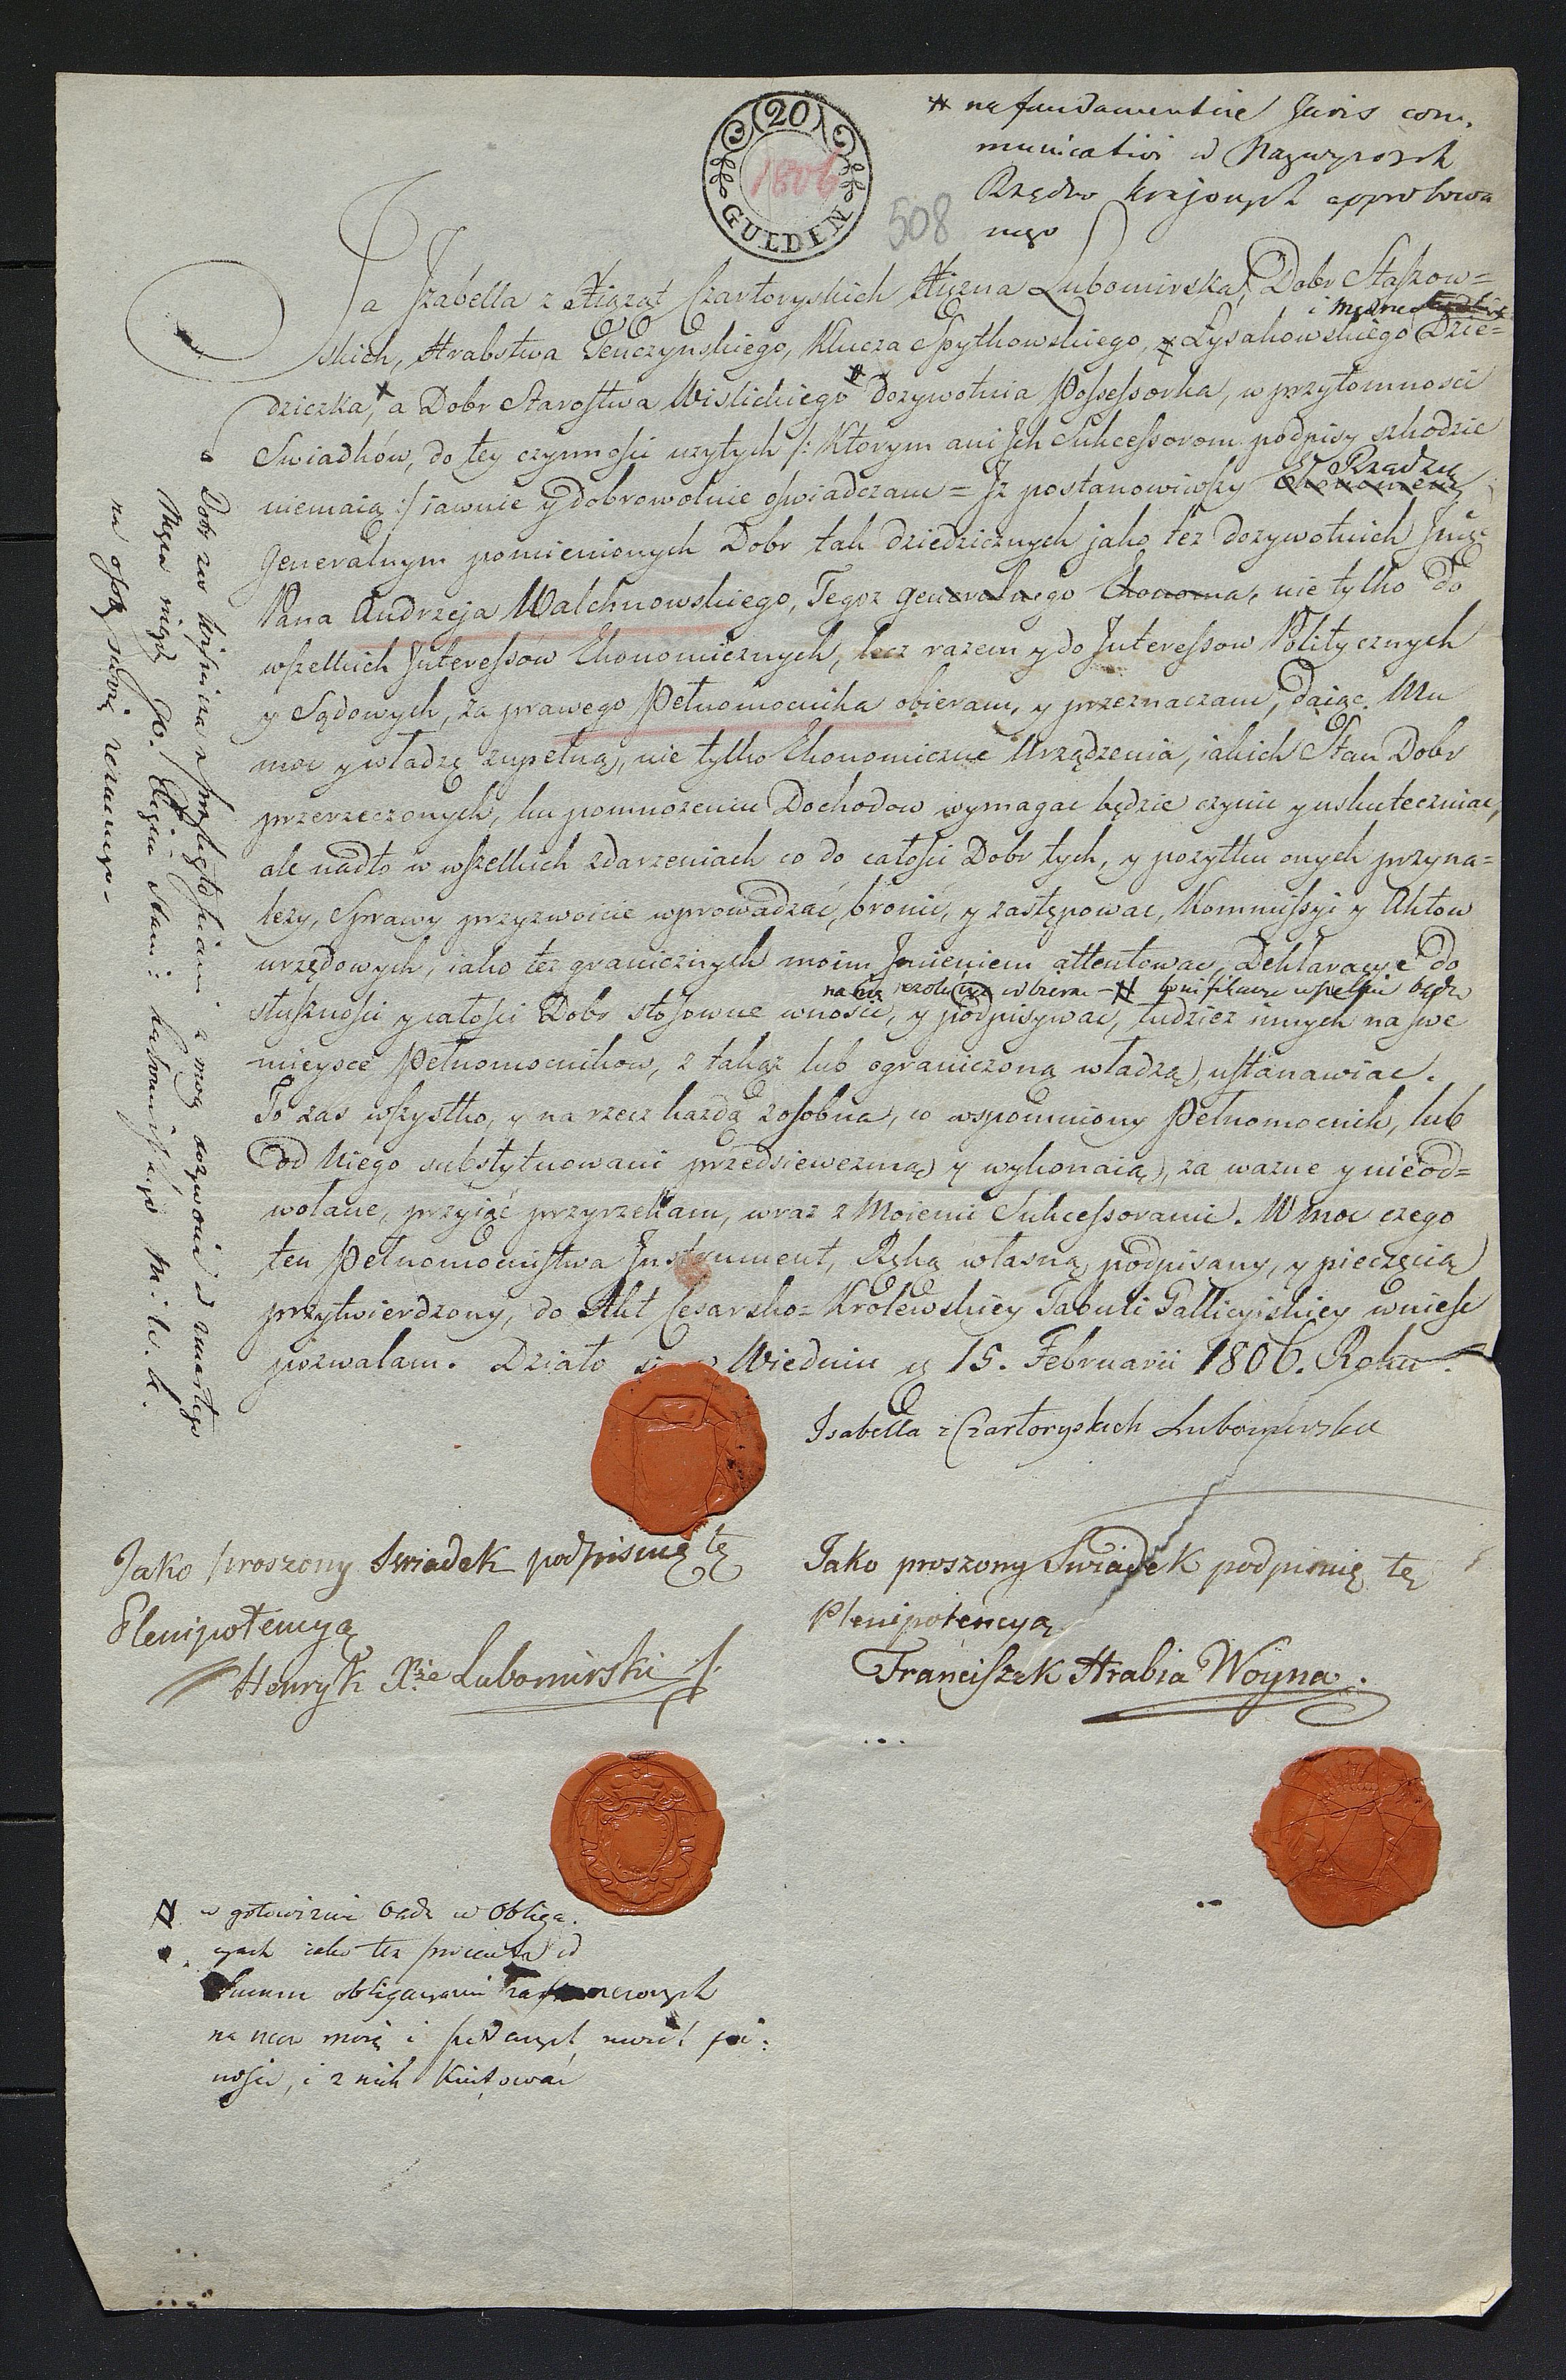 20
1806
GULDEN
508
# na fundamencie Juris com-
municativi w
Rządów krajowych approbowa
nego
Ja Jzabella z Xiąząt Czartoryskich Xięzna Lubomirska, Dobr Staszow=
skich, Hrabstwa Tenczynskiego, Klucza Spytkowskiego, y Łysakowskiego Dzie=
dziczka, a Dobr Starostwa Wislickiego dozywotnia Possessorka, w przytomnosci
Swiadków, do tey czynnosci uzytych /: Ktorym ani Jch Sukcessorom podpisy szkodzic
niemaią :/ iawnie y dobrowolnie oswiadczam = Jz postanowiwszy Ekonomem Rządzcą
generalnym pomienionych Dobr tak dziedzicznych jako tez dozywotnich Jmć
Pana Andrzeja Walchnowskiego, Tegoz generalnego Ekonoma, nie tylko do
wszelkich Jnteressów Ekonomicznych, lecz razem y do Jnteressow Politycznych
y Sądowych, za prawego Pełnomocnika obieram, y przeznaczam, daiąc Mu
moc y władzę zupełną, nie tylko Ekonomiczne Urządzenia, iakich Stan Dobr
przerzeczonych, ku pomnozeniu Dochodow wymagac będzie czynic y uskuteczniac,
ale nadto w wszelkich zdarzeniach co do całosci Dobr tych, y pozytku onych przyna=
lezy, Sprawy przyzwoicie wprowadzać, bronić, y zastępowac, Kommissyi y Aktow
urzędowych, iako tez granicznych moim Jmieniem attentowac, Deklaracye do
słusznosci y całosci Dobr stosowne wnosić, y podpisywac, tudziez innych na swe
mieysce Pełnomocnikow, z takąz lub ograniczoną władzą, ustanawiac.
To zas wszystko, y na rzecz kazdą zosobna, co wspomniony Pełnomocnik, lub
Od Niego substytuowani przedsiewezmą y wykonaią, za wazne y nieod=
wołane, przyiąć przyrzekam, wraz z Moiemi Sukcessorami. W moc czego
ten Pełnomocnistwa Jnstrument, Ręką własną podpisany, y pieczęcią
przytwierdzony, do Akt Cesarsko=Królewskiey Tabuli Gallicyiskiey wniesc
pozwalam. Działo się w Wiedniu d 15. Februarii 1806. Roku.
Isabella z Czartoryskich Lubomirska
Jako proszony Swiadek podpisuię tę
Plenipotencyą
Henryk Xże Lubomirski
Jako proszony Swiadek podpisuię tę
Plenipotencyą
Franciszek Hrabia Woyna.
# w gotowiznie bądz w Obliga-
cyach iako tez procenta od
Summ obligacyami
na rzecz moią i
nosić, i z nich kwitować